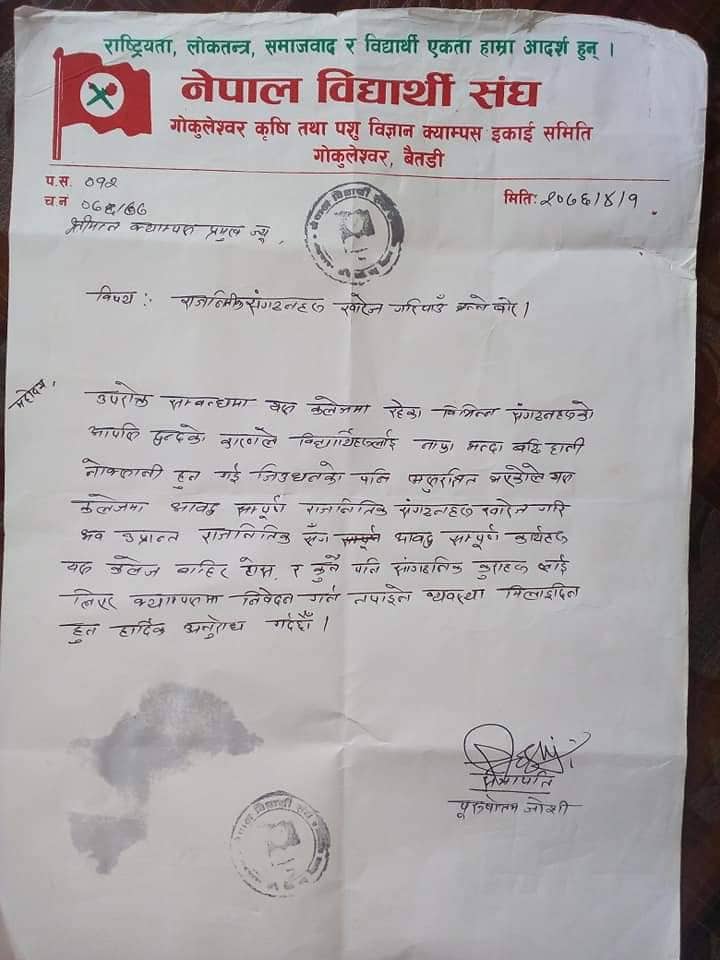 राष्ट्रियता, लोकतन्त्र, समाजवाद र विद्यार्थी एकता हाम्रा आदर्श हुन् ।
नेपाल विद्यार्थी संघ
गोकुलेश्वर कृषि तथा पशु विज्ञान क्याम्पस इकाई समिति
गोकुलेश्वर, बैतडी
प.स. ०१२
च.नं ०७६/७७
मितिः २०७६/४/१
श्रीमान क्याम्पस प्रमुख ज्यू,
नेपाल विद्यार्थी संघ
विषय :- राजनितिक संगठनहरु खारेज गरिपाउँ भन्ने बारे।
महोदय,
उपरोक्त सम्बन्धमा यस कलेजमा रहेका विभिन्न संगठनहरुको
आपसि द्वन्दको कारणले विद्यार्थिहरुलाई नाफा भन्दा बढि हानी
नोक्सानी हुन गई जिउधनको पनि असुरक्षित भएकोले यस
कलेजमा आवद्ध सम्पूर्ण राजनितिक संगठनहरु खारेज गरि
अव उप्रान्त राजनितिक सँग आवद्ध सम्पूर्ण कार्यहरु
यस कलेज बाहिर होस् र कुनै पनि सांगठनिक कुराहरु लाई
लिएर क्याम्पसमा निवेदन गर्न नपाइने व्यवस्था मिलाइदिन
हुन हार्दिक अनुरोध गर्दछौँ ।
सभापति
पुरुषोतम जोशी
नेपाल विद्यार्थी संघ